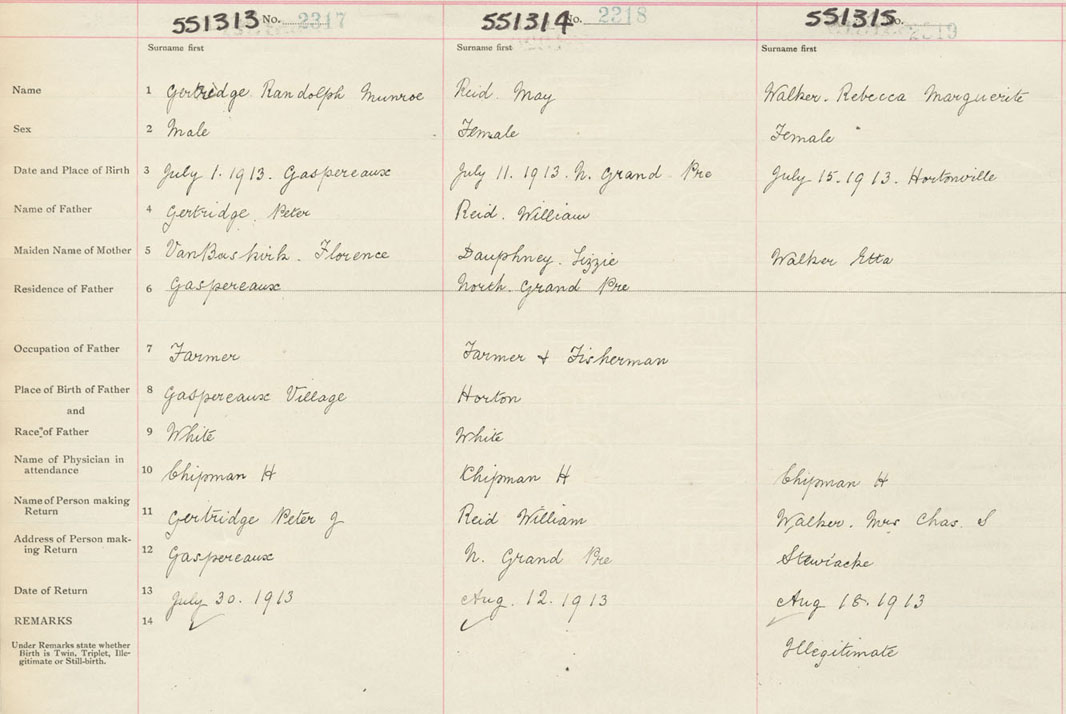 551313 No. 2317 551314 No. 2318 551315 No. 2319
Surname first Surname first Surname first
Name 1 Gertridge Randolph Munroe Reid. May Walker. Rebecca Marguerite
Sex 2 Male Female Female
Date and Place of Birth 3 July 1. 1913. Gaspereaux July 11. 1913. N. Grand Pre July 15. 1913. Hortonville
Name of Father 4 Gertridge. Peter Reid. William
Maiden Name of Mother 5 VanBuskirk. Florence Dauphney. Lizzie Walker Etta
Residence of Father 6 Gaspereaux North. Grand Pre
Occupation of Father 7 Farmer Farmer & Fisherman
Place of Birth of Father 8 Gaspereaux Village Horton
and
Race of Father 9 White White
Name of Physician in
attendance 10 Chipman H Chipman H Chipman H
Name of Person making
Return 11 Gertridge Peter J Reid William Walker. Mrs Chas. S
Address of Person mak-
ing Return 12 Gaspereaux N. Grand Pre Stewiacke
Date of Return 13 July 30. 1913 Aug. 12. 1913 Aug 18. 1913
REMARKS 14
Under Remarks state whether
Birth is Twin, Triplet, Ille-
gitimate or Still-birth. Illegitimate